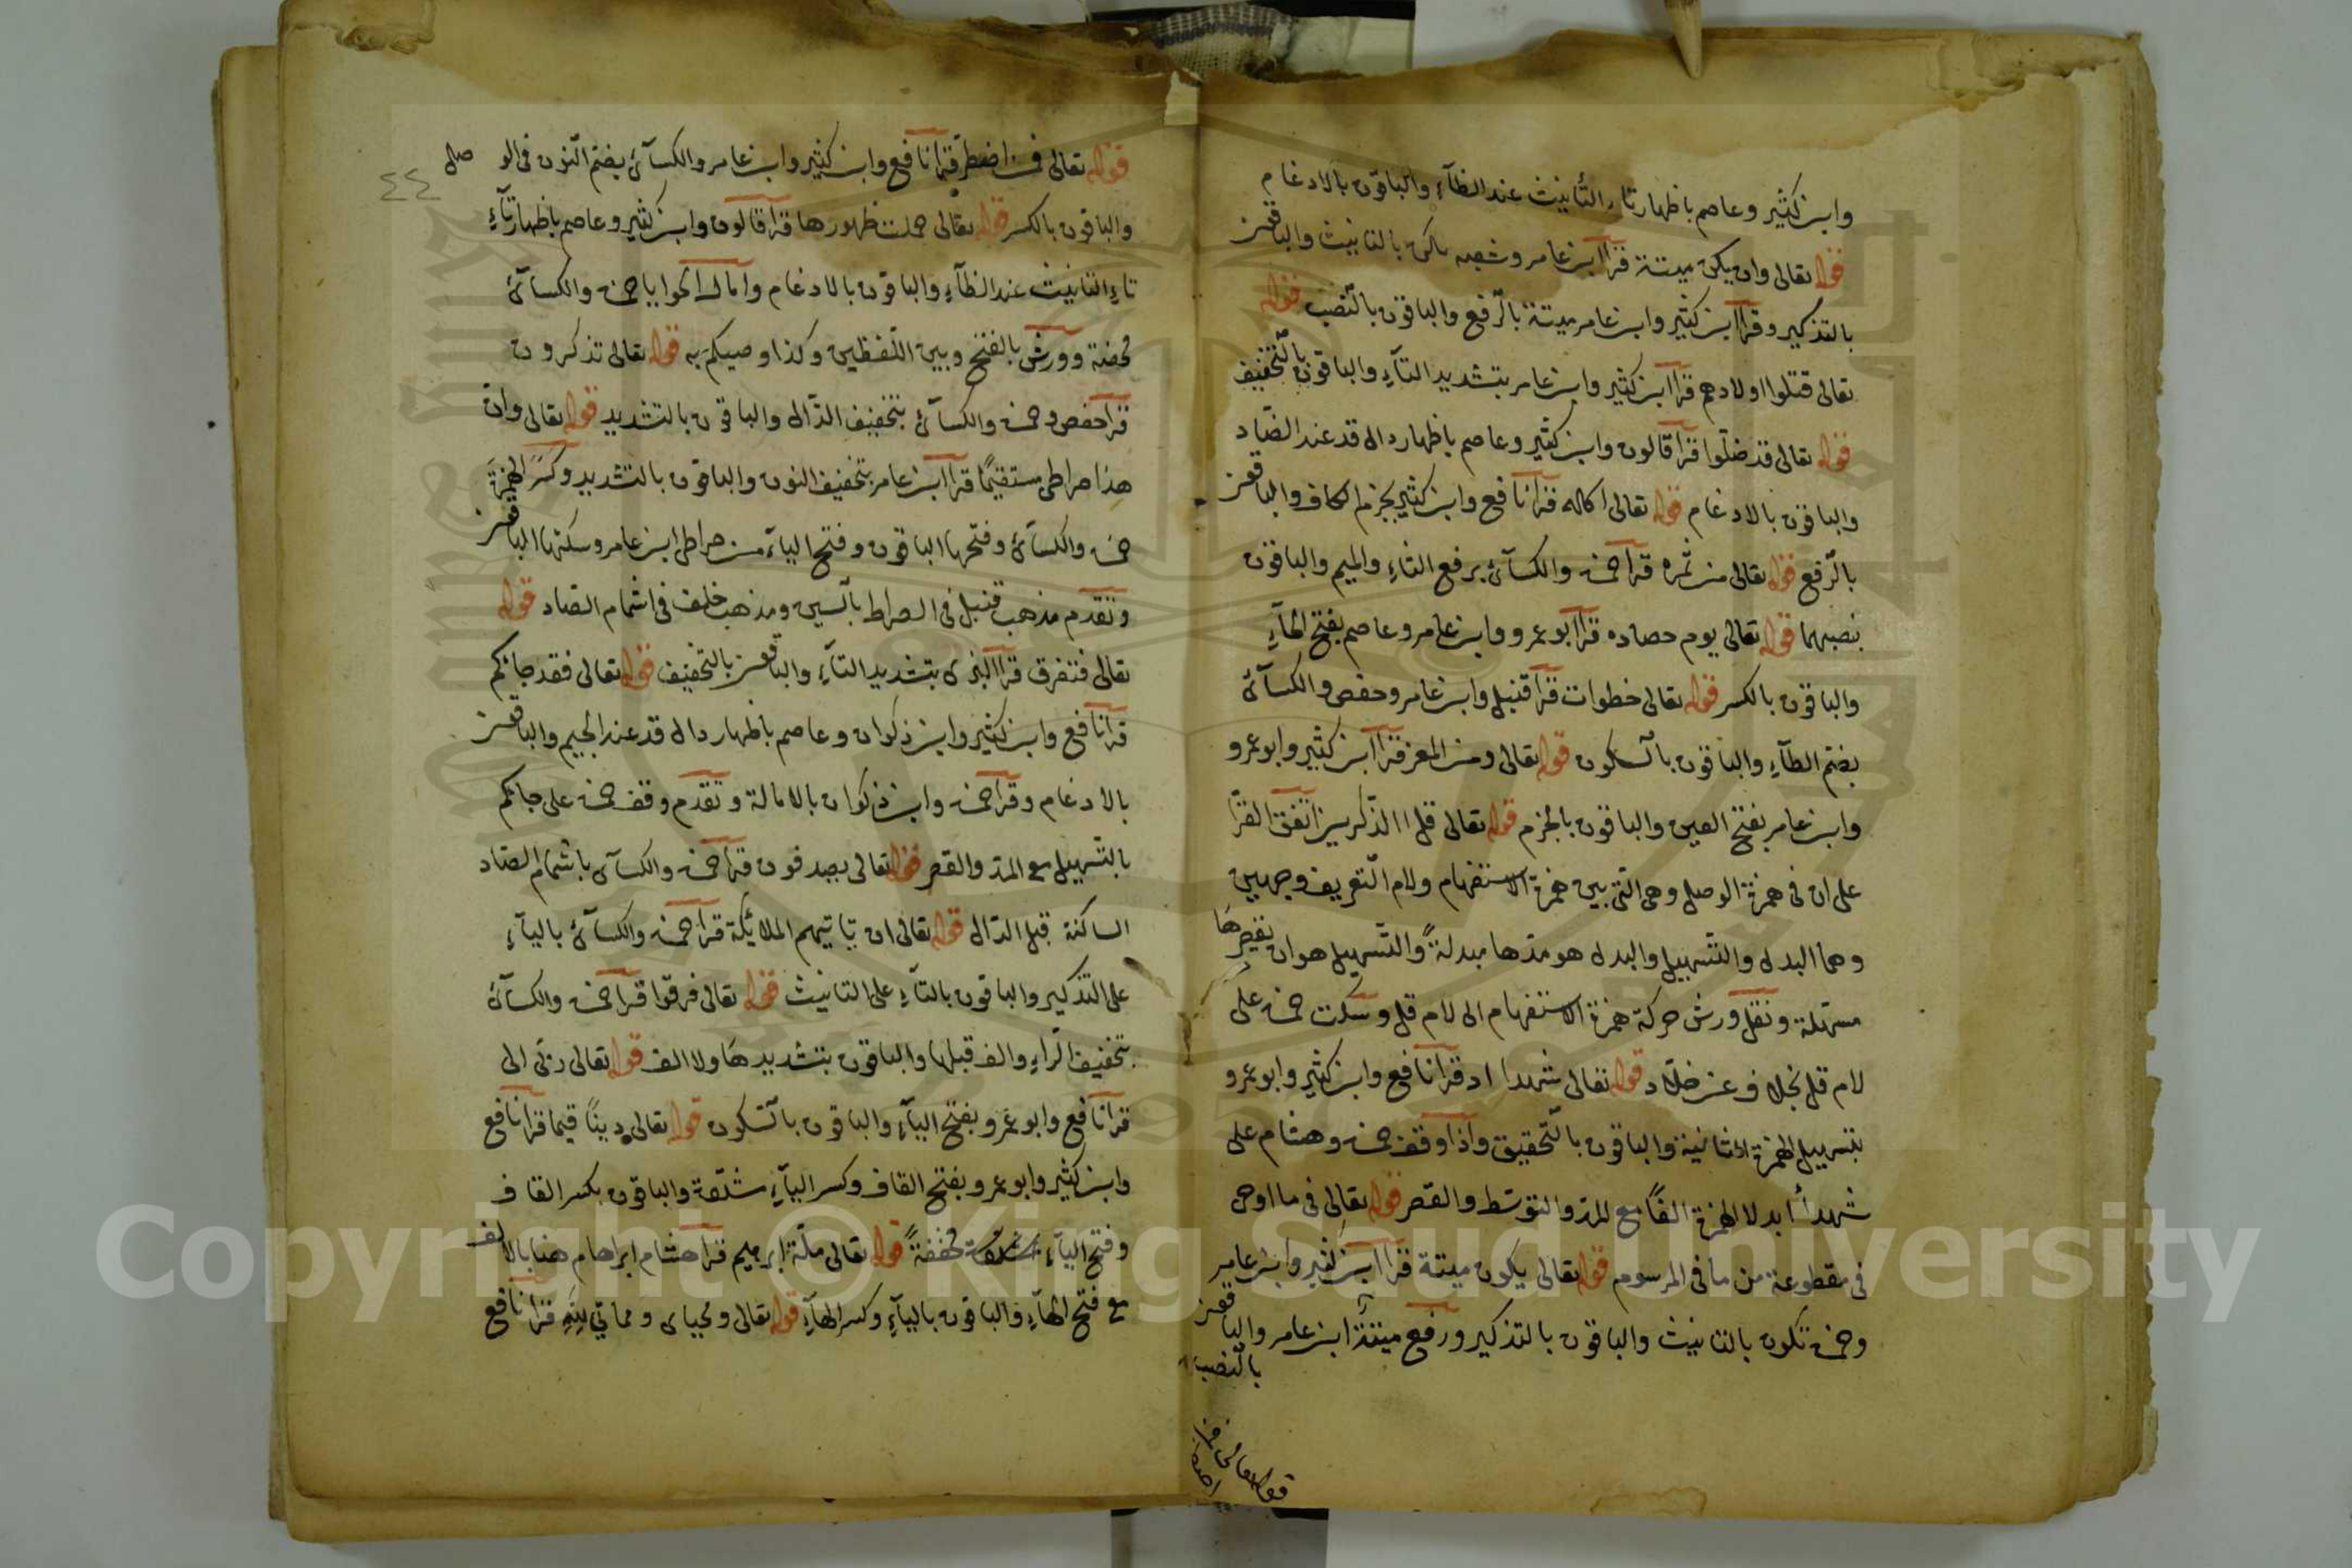 وابن كثير وعاصم باظهار تاء التأنيث عند الظآء والباقون بالادغام
قوله تعالى وان يكن ميتة قرأ ابن عامر وشعبه تكن بالتانيث والباقون
بالتذكير وقرأ ابن كثير وابن عامر ميتة بالرّفع والباقون بالنّصب قوله
تعالى قتلوا اولادهم قرأ ابن كثير وابن عامر بتشديد التآء والباقون بالتّخفيف
قوله تعالى قد ضلّوا قرأ قالون وابن كثير وعاصم باظهار دال قد عند الضّاد
والباقون بالادغام قوله تعالى اكله قرأ نافع وابن كثير بجزم الكاف والباقون
بالرّفع قوله تعالى من ثمره قرأ حمزه والكسآئ برفع الثاء والميم والباقون
بنصبهما قوله تعالى يوم حصاده قرأ ابو عمرو وابن عامر وعاصم بفتح الحآء
والباقون بالكسر قوله تعالى خطوات قرأ قنبل وابن عامر وحفص والكسآئ
بضم الطآء والباقون بالسكون قوله تعالى ومن المعز قرأ ابن كثير وابو عمرو
وابن عامر بفتح العين والباقون بالجزم قوله تعالى قل ا الذّكرين اتفق القرّا
على ان فى همزة الوصل وهى التى بين همزة الاستفهام ولام التّعريف وجهين
وهما البدل والتّسهيل والبدل هو مدّها مبدلةً والتّسهيل هو ان تقصرها
مسهلة ونقل ورش حركة همزة الاستفهام الى لام قل وسكت حمزه على
لام قل بخلاف عن خلّاد قوله تعالى شهدا اذ قرأ نافع وابن كثير وابو عمرو
بتسهيل الهمزة الثانية والباقون بالتّحقيق واذا وقف حمزه وهشام على
شهدأ ابدلا الهمزة الفًا مع المدّ والتوسّط والقصر قوله تعالى فى ما اوحى
فى مقطوعة من ما فى المرسوم قوله تعالى يكون ميتة قرأ ابن كثير وابن عامر
وحمزه تكون بالتانيث والباقون بالتذكير ورفع ميتة ابن عامر والباقون
بالنّصب
قوله تعالى فمن
اضطر
٤٤
قوله تعالى فمن اضطر قرأ نافع وابن كثير وابن عامر والكسآئ بضم النّون فى الوصل
والباقون بالكسر قوله تعالى حملت ظهورها قرأ قالون وابن كثير وعاصم باظهار تآء
تاء التانيث عند الظآء والباقون بالادغام وامال الحوايا حمزه والكسآئ
محضة وورش بالفتح وبين اللّفظين وكذا وصيكم به قوله تعالى تذكرون
قرأ حفص وحمزه والكسآئ بتخفيف الذّال والباقون بالتشديد قوله تعالى وان
هذا صراطى مستقيمًا قرأ ابن عامر بتخفيف النون والباقون بالتشديد وكسر الهمزة
حمزه والكسآئ وفتحها الباقون وفتح اليآء من صراطى ابن عامر وسكنها الباقون
وتقدم مذهب قنبل فى الصراط بالسين ومذهب خلف فى اشمام الصاد قوله
تعالى فتفرق قرأ البزى بتشديد التآء والباقون بالتخفيف قوله تعالى فقد جائكم
قرأ نافع وابن كثير وابن ذكوان وعاصم باظهار دال قد عند الجيم والباقون
بالادغام وقرأ حمزه وابن ذكوان بالامالة وتقدم وقف حمزه على جائكم
بالتسهيل مع المدّ والقصر قوله تعالى يصدفون قرأ حمزه والكسآى باشمام الصّاد
الساكنة قبل الدّال قوله تعالى ان تاتيهم الملائكة قرأ حمزه والكسآئ باليآء
على التذكير والباقون بالتآء على التانيث قوله تعالى فرقوا قرأ حمزه والكسآئ
بتخفيف الرّاء والف قبلها والباقون بتشديدها ولا الف قوله تعالى ربّى الى
قرأ نافع وابو عمرو بفتح اليآء والباقون بالسّكون قوله تعالى دينًا قيما قرأ نافع
وابن كثير وابو عمرو بفتح القاف وكسر اليآء مشدّدة والباقون بكسر القاف
وفتح اليآء مخففةً قوله تعالى ملّة ابرهيم قرأ هشام ابراهام هنا بالالف
مع فتح الهآء والباقون باليآء وكسر الهآء قوله تعالى ومحياى ومماتي للهِ قرأ نافع
Copyright © King Saud University